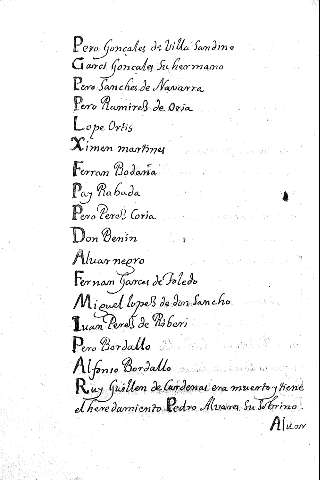 Pero Gonçales de Villa Sandino
Garci Gonçales Su hermano
Pero Sanches de Navarra
Pero Ramires de Oria
Lope Ortis
Ximen martines
Ferran Bodaña
Pay Rabuda
Pero Peres Coria
Don Benin
Alvar negro
Fernan Garces de Toledo
Miguel lopes de don Sancho
Iuan Peres de Riberi
Pero Bordallo
Alfonso Bordallo
Ruy Guillen de Cardenas era muerto y tiene
el heredamiento Pedro Alvares Su Sobrino.
Alvar